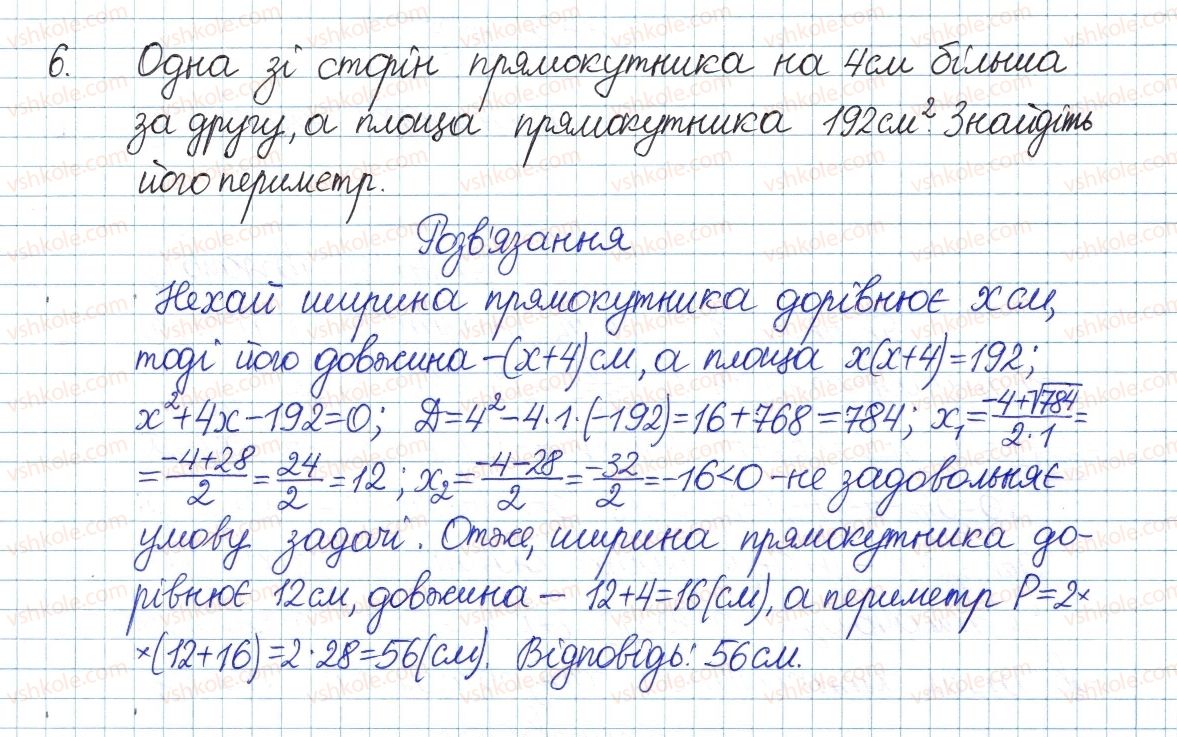 6. Одна зі сторін прямокутника на 4см більша
за другу, а площа прямокутника 192см². Знайдіть
його периметр.
Розв'язання
Нехай ширина прямокутника дорівнює x см,
тоді його довжина –(x+4)см, а площа x(x+4)=192;
x²+4x–192=0; Д=4²–4·1·(–192)=16+768=784; x₁=(–4+√784)/(2·1)=
=(–4+28)/2=24/2=12; x₂=(–4–28)/2=–32/2=–16<0 –не задовольняє
умову задачі. Отже, ширина прямокутника до-
рівнює 12см, довжина – 12+4=16(см), а периметр P=2×
×(12+16)=2·28=56(см). Відповідь: 56см.